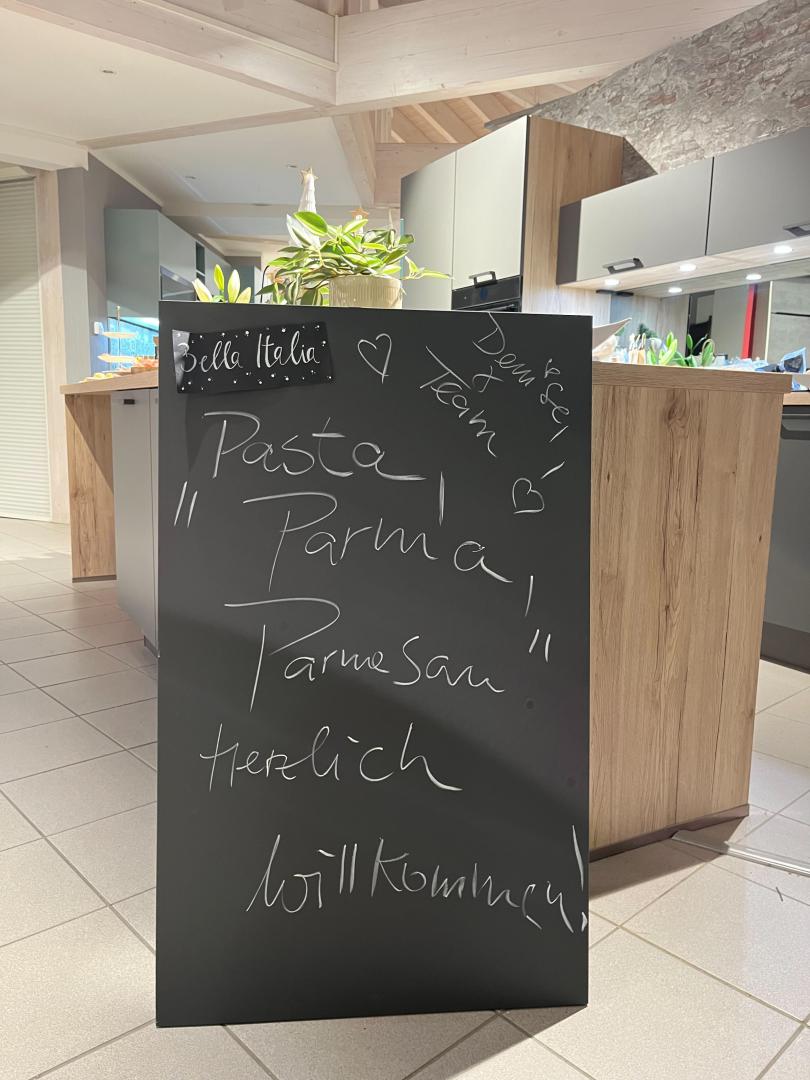 Bella Italia
Denise,
+
Team
Pasta,
"Parma,
Parmesan"
Herzlich
Willkommen!